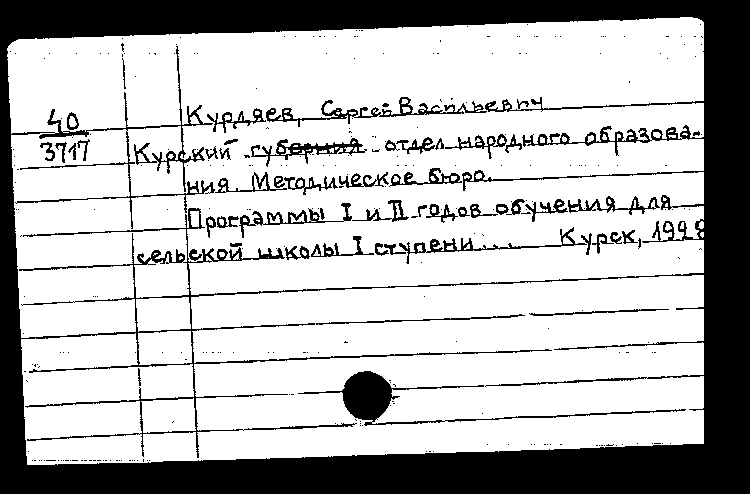 40
3717
Курдяев, Сергей Васильевич
Курский губерния отдел народного образова-
ния. Методическое бюро.
Программы I и II годов обучения для
сельской школы I ступени... Курск, 1928